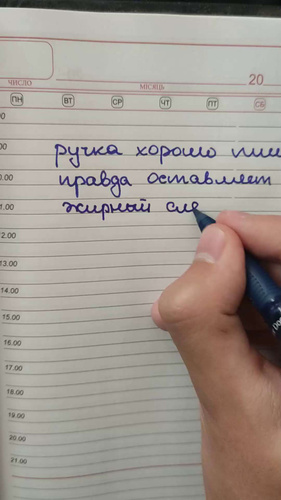 ЧИСЛО МІСЯЦЬ 20
ПН ВТ СР ЧТ ПТ СБ
ручка хорошо пише
правда оставляет
жирный сле
12.00
13.00
14.00
15.00
16.00
17.00
18.00
19.00
20.00
21.00